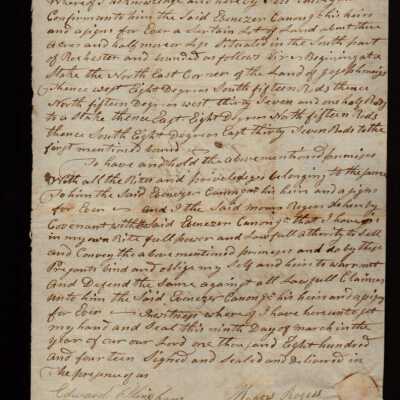 Where of I acknowledge and here by Sell
Confirm unto him the Said Ebenezer Canong his heirs
and asigns for Ever a Sertain Lot of Land about three
acres and half more or Less Situated in the South part
of Rochester and bounded as follows Begining at a
Stake the North East Corner of the Land of Joseph
thence west Eight Degrees South fifteen Rods thence
North fifteen Degrees west thirty Seven and one half Rods
to a Stake thence East Eight Degrees North fifteen Rods
thence South Eight Degrees East thirty Seven Rods to the
first mentioned bound
To have and hold the above mentioned premises
With all the Rites and priveledges belonging to the same
To him the Said Ebenezer Canong his heirs and asigns
for Ever And I the Said Rogers do hereby
Covenant with Said Ebenezer Canong that I have
in my own Rite full power and Lawfull athority to Sell
and Convey the above mentioned premises and do by these
Presants bind and oblige my Self and heirs to warrant
And Defend the Same against all Lawfull Claimes
unto him the Said Ebenezer Canong his heirs and asigns
for Ever In witness where of I have hereunto Set
my hand and Seal this ninth Day of march in the
year of our our Lord one thousand Eight hundred
and fourteen Signed and Sealed and Delivered in
the presence of us
Edward Rogers